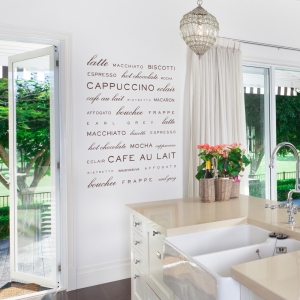 latte MACCHIATO BISCOTTI
ESPRESSO hot chocolate MOCHA
CAPPUCCINO ECLAIR
cafe au lait RISTRETTO MACARON
AFFOGATO bouchee FRAPPE
EARL GREY latte
MACCHIATO biscotti ESPRESSO
hot chocolate MOCHA cappuccino
ECLAIR CAFE AU LAIT
RISTRETTO MACARON AFFOGATO
bouchee FRAPPE earl grey